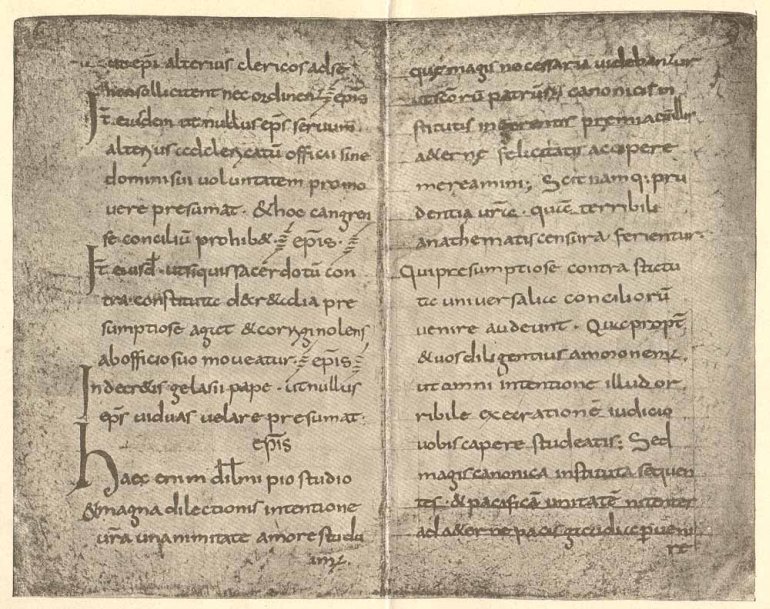 ut epi̅ alterius clericos ad se
sollicitent nec ordinen epi̅s
It̅ eiusdem ut nullus ep̅s servum
alterius ad clericatu̅ officii sine
domini sui voluntatem promo
vere presumat · & hoc cangren
se conciliu̅ prohib& · epi̅s ·
It̅ eiusd̅ · ut siquis sacerdotu̅ con
tra constituta decr&alia pre
sumptiose agat & corrigi nolens
ab officio suo moveatur · epi̅s
In decr&is gelasii pape · ut nullus
ep̅s viduas velare presumat ·
epi̅s
Haec enim dil̅mi pio studio
& magna dilectionis intentione
vr̅a unanimitate amore studu
que magis necessaria videbantur
ut sc̅oru̅ patru̅ canonicis in
stitutis inherentis premia cu̅ illis
a&erne felicitatis accipere
mereamini; Scit namq: pru
dentia vr̅a · quae terribile
anathematis censura ferientur ·
Qui presumptiose contra statu
ta universaliae conciliorū
venire audeunt · Qua propt̅
& vos diligentius amonem;
ut omni intentione illud or
ribile execratione̅ iudicio
vobis capere studeatis; Sed
magis canonica instituta sequen
tes · & pacifica̅ unitate̅ nitentes
ad a&erne pacis gaudia p̅veni
re